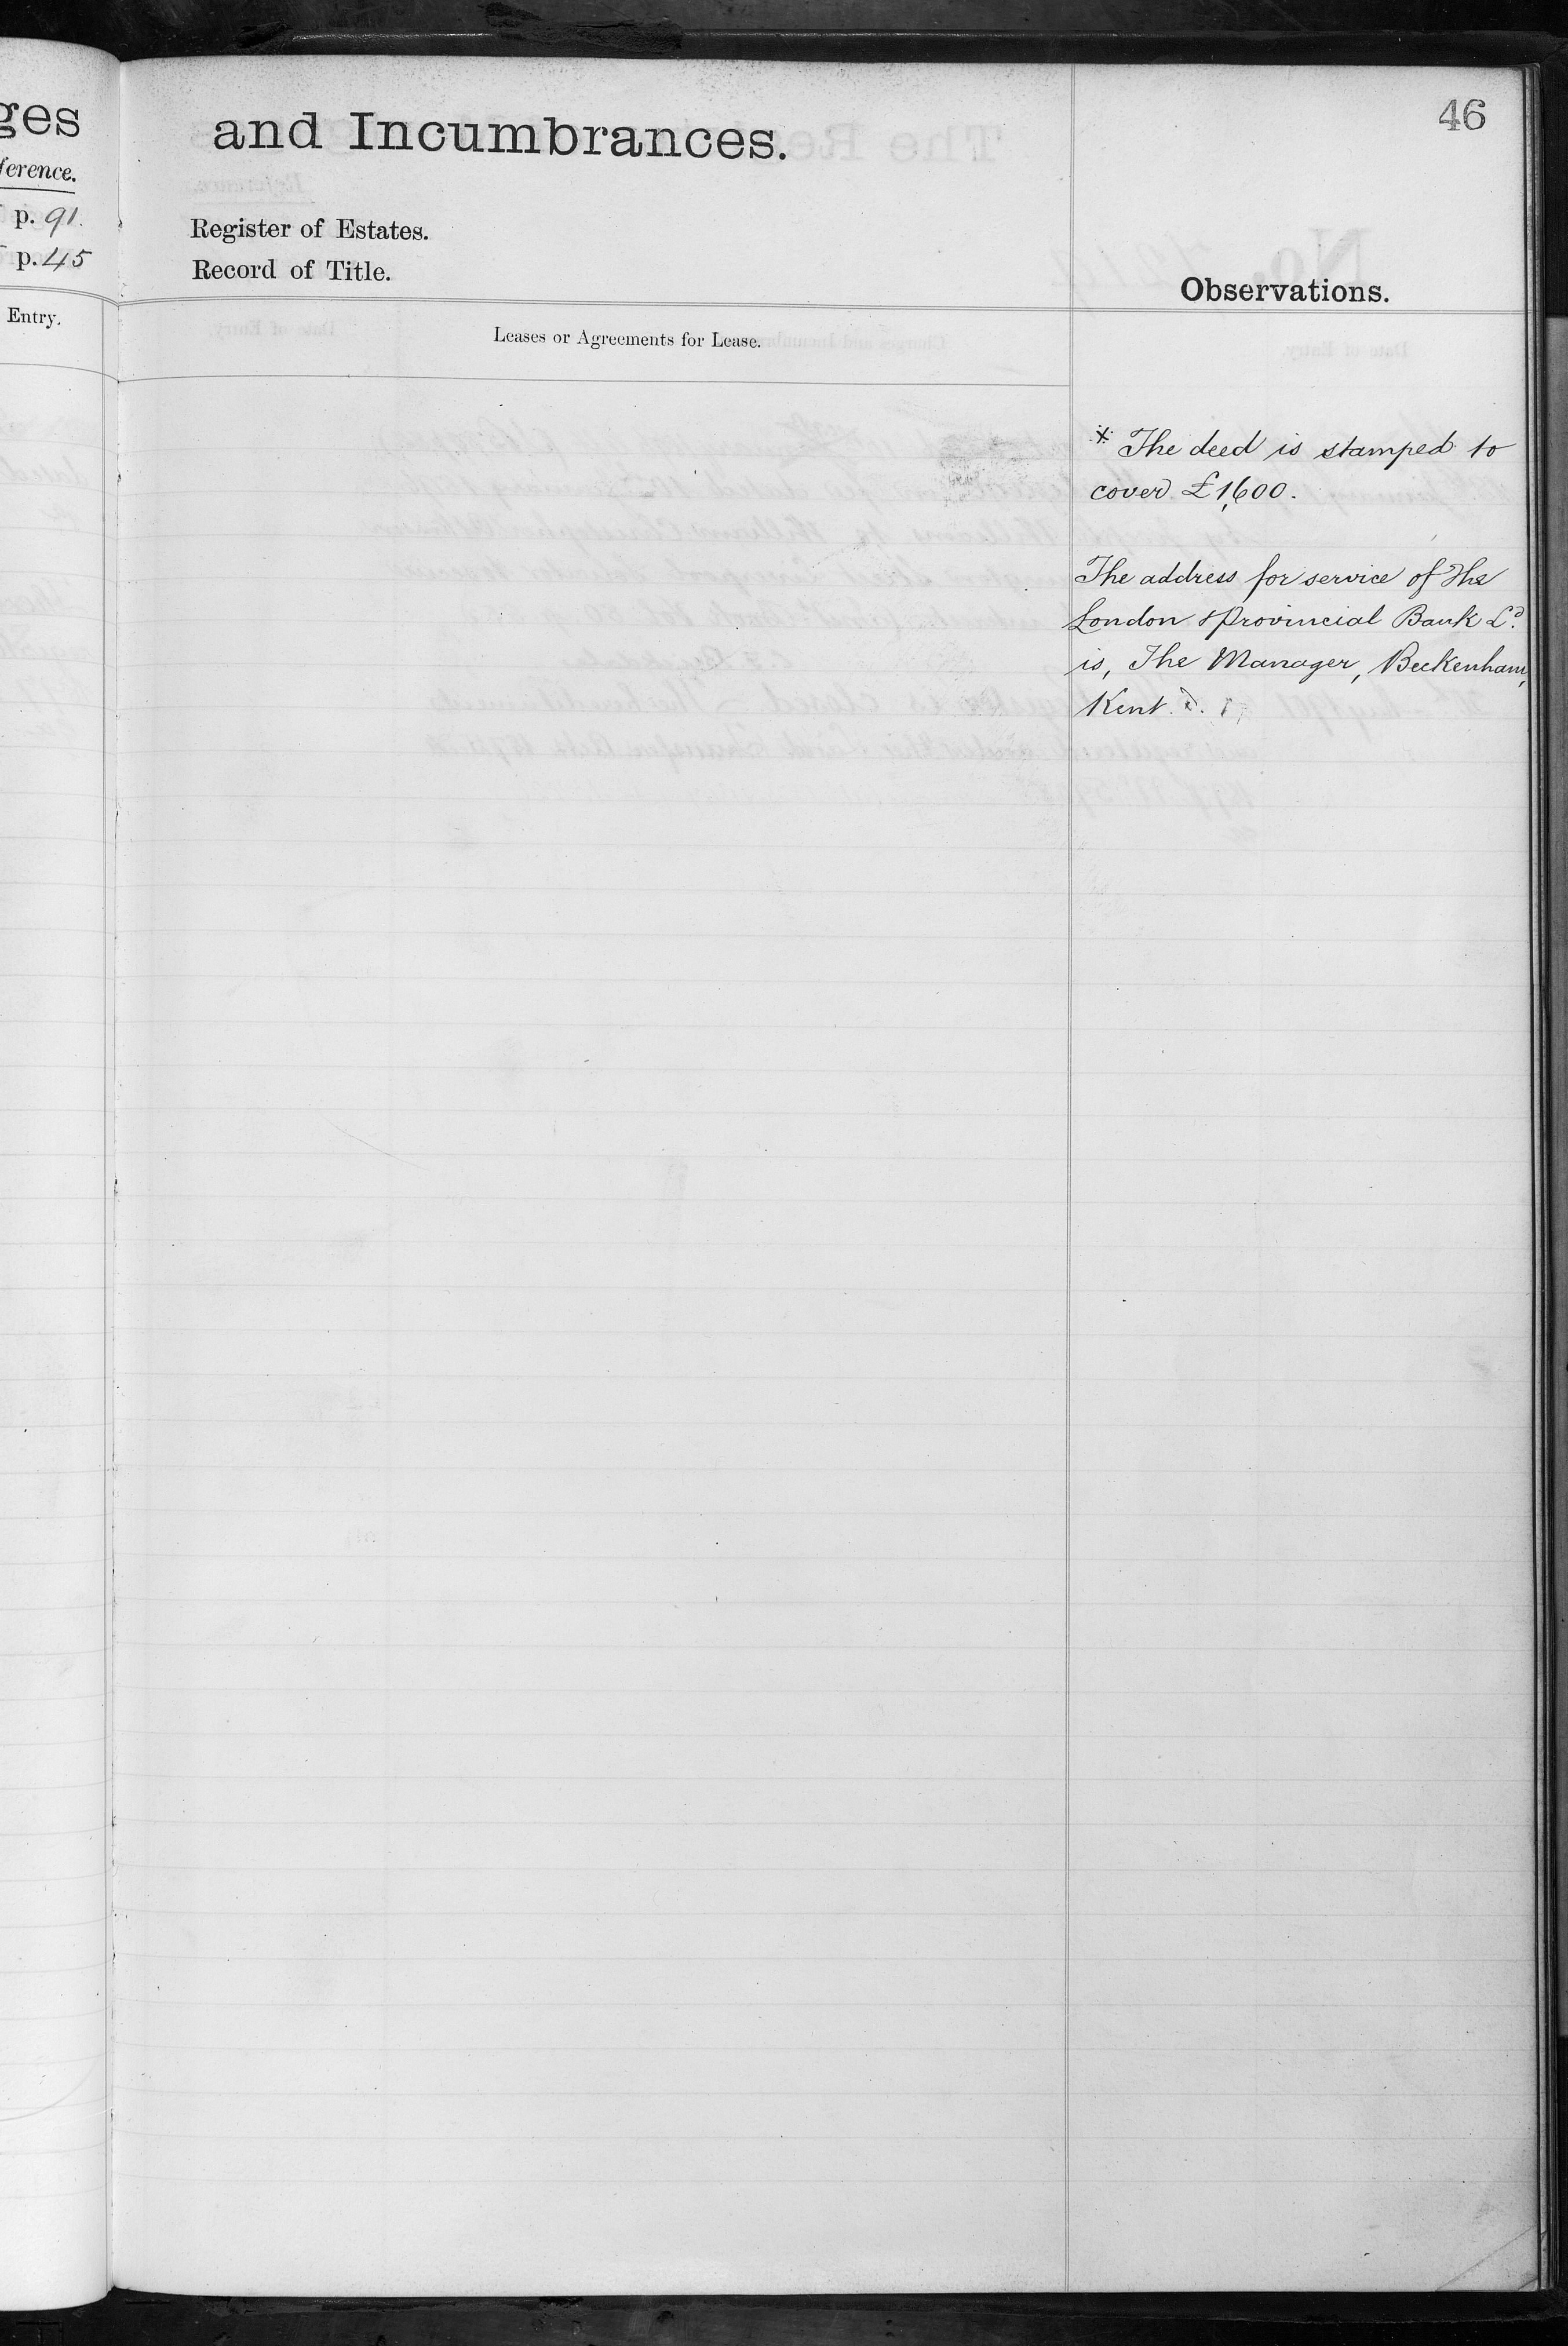 ges
ference.
p. 91.
p. 45
Entry.
and Incumbrances.
46
Register of Estates.
Record of Title.
Observations.
Leases or Agreements for Lease.
* The deed is stamped to
cover £1,600.
The address for service of The
London & Provincial Bank Ld.
is, The Manager, Beckenham,
Kent.